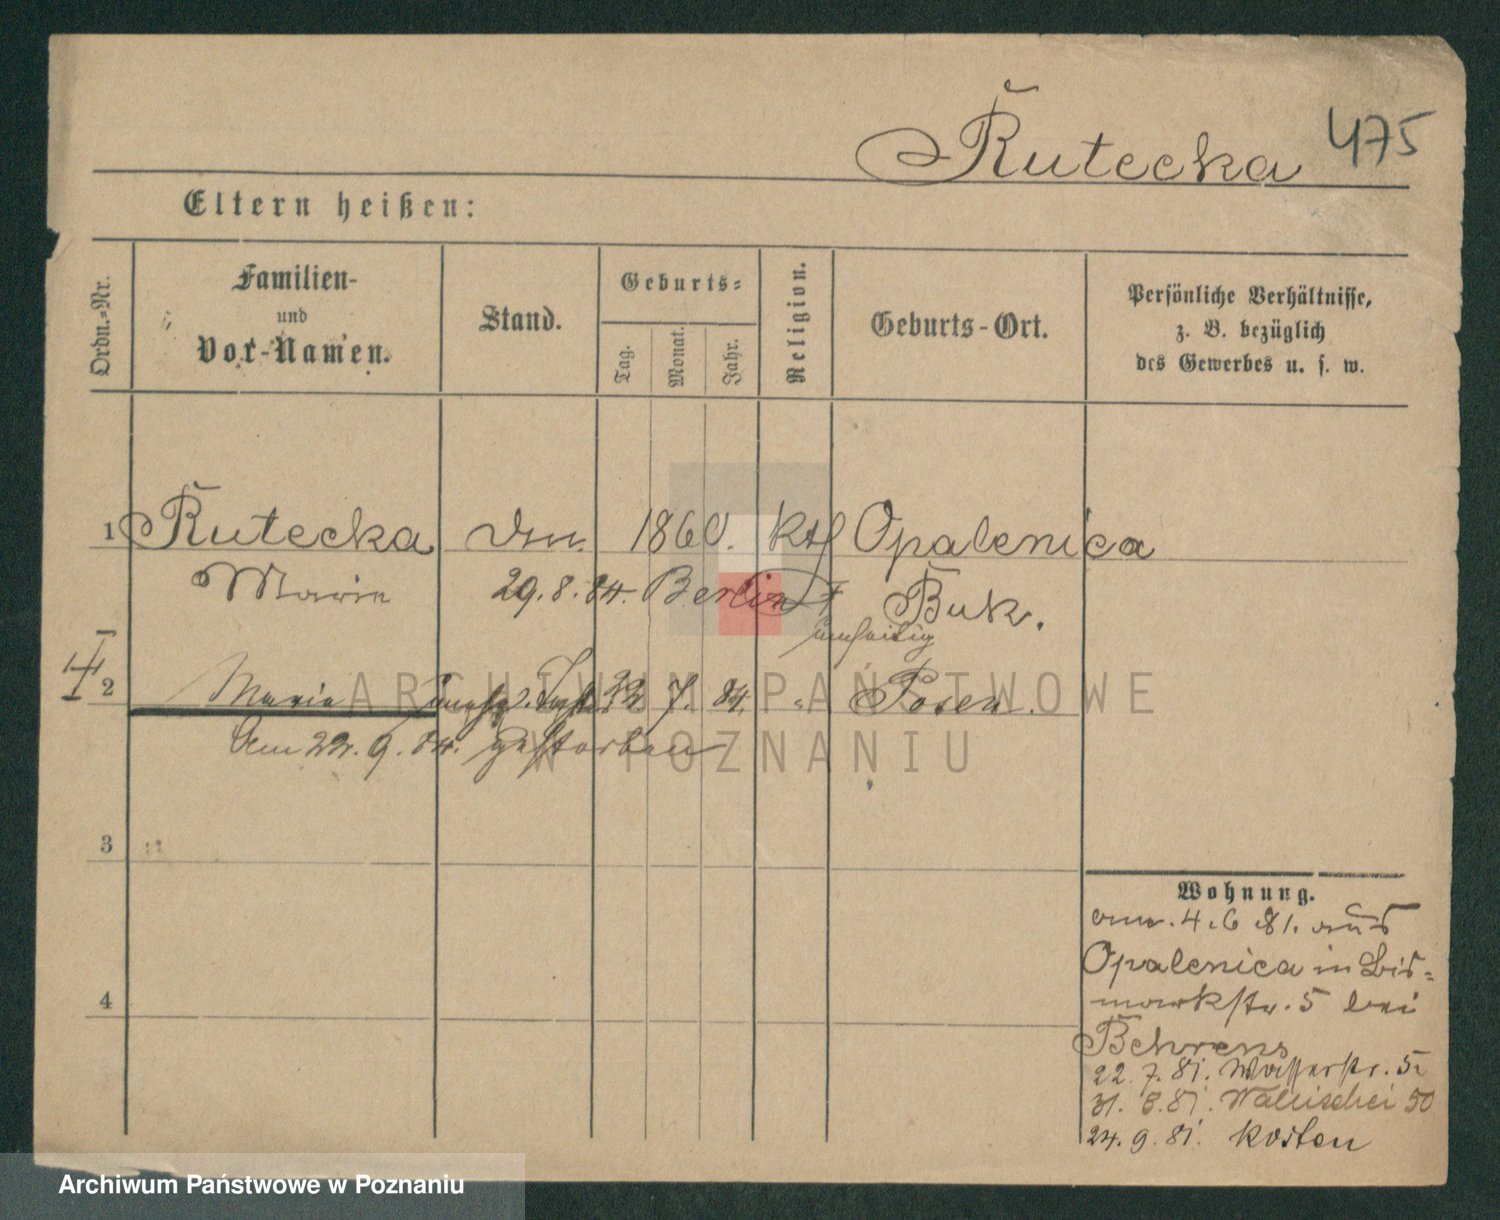 Rutecka 475
Eltern heißen:
Ordn.-Nr.
Familien-
und
Vor-Namen.
Stand.
Geburts-
Tag.
Monat.
Jahr.
Religion.
Geburts-Ort.
Persönliche Verhältnisse,
z. B. bezüglich
des Gewerbes u. s. w.
1 Rutecka 1860. kth Opalenica
Marie 29. 8. 84. Berlin Buk.
2 Maria 22 7. 84. " Posen.
Am 22. 9. 84. gestorben
3
4
Wohnung.
4. 6. 81. aus
Opalenica in Bis-
markstr. 5 bei
Behrens
22. 7. 81. Wasserstr. 5
31. 8. 81. Wallischei 50
24. 9. 81. Kosten
ARCHIWUM PAŃSTWOWE
W POZNANIU
Archiwum Państwowe w Poznaniu